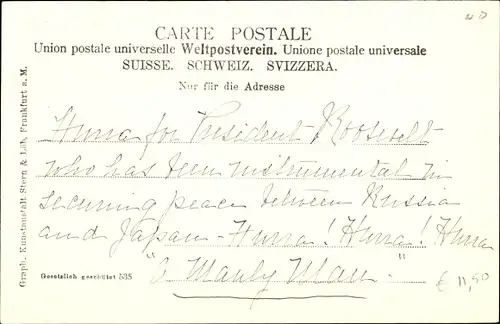 CARTE POSTALE
Union postale universelle Weltpostverein. Unione postale universale
SUISSE. SCHWEIZ. SVIZZERA.
Nur für die Adresse
Hurra for President Roosevelt
who has been instrumental in
securing peace between Russia
and Japan - Hurra! Hurra! Hurra
"O Manly Man."
€ 11,50
Gesetzlich geschützt 535
Graph. Kunstanstalt Stern & Lob, Frankfurt a. M.